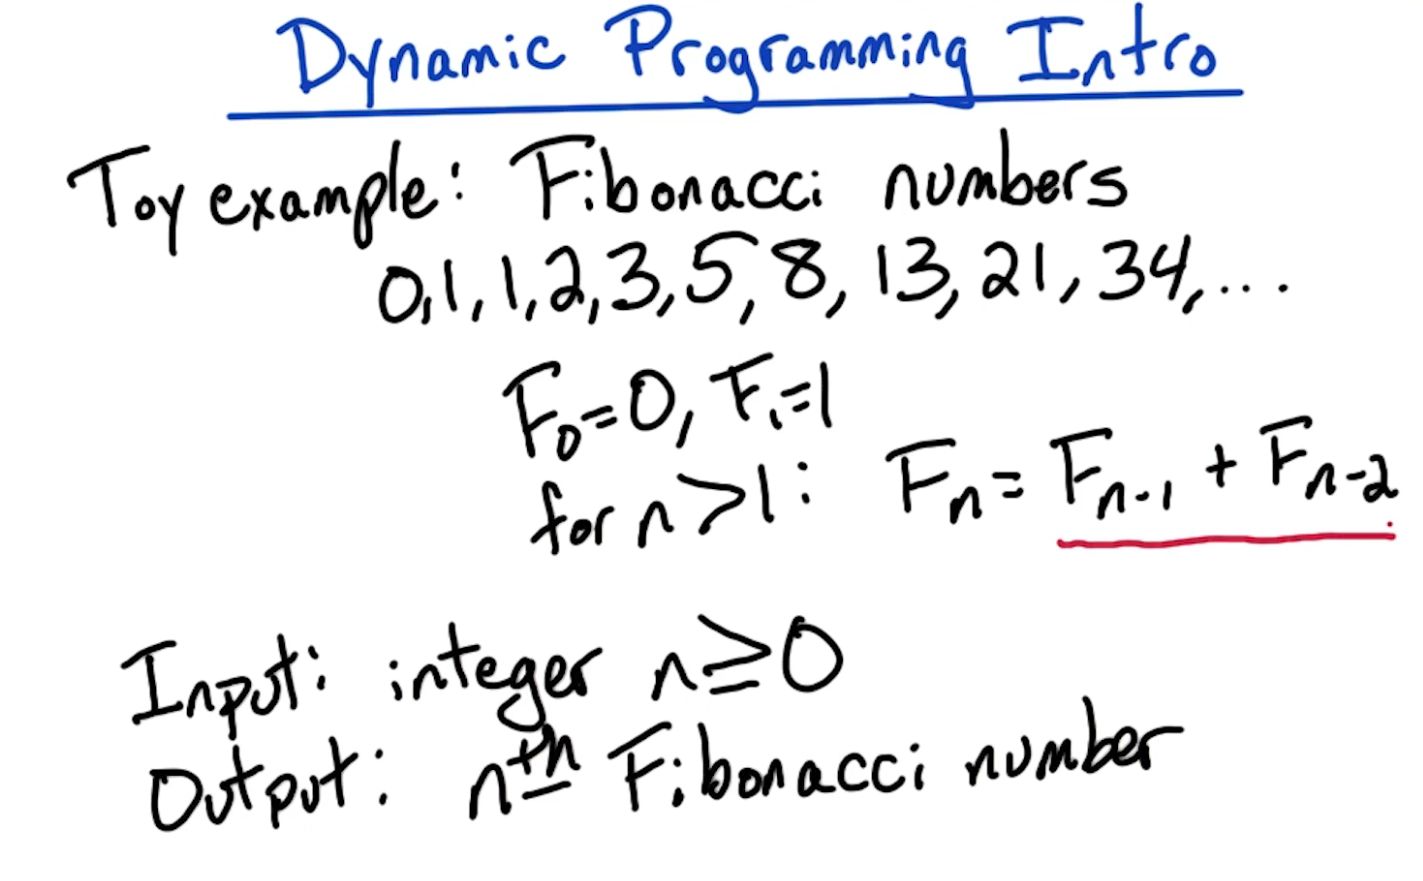 Dynamic Programming Intro
Toy example: Fibonacci numbers
0, 1, 1, 2, 3, 5, 8, 13, 21, 34, ...
F₀ = 0, F₁ = 1
for n > 1: Fₙ = Fₙ₋₁ + Fₙ₋₂
Input: integer n ≥ 0
Output: nᵗʰ Fibonacci number